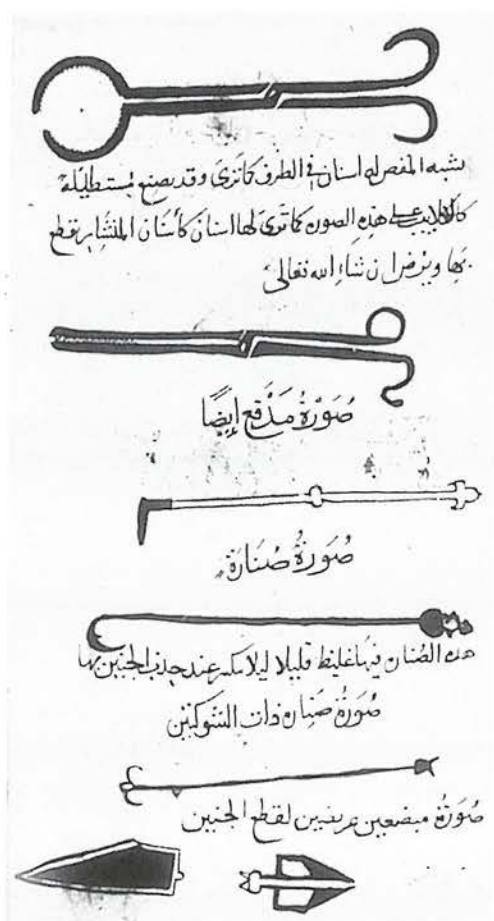 يشبه المقص له اسنان في الطرف كما ترى وقد يصنع مستطيلة
كالكلاليب على هذه الصورة كما ترى لها اسنان كأسنان المنشار يقطع
بها ويرض ان شاء الله تعالى
صُورَةُ مَدْفع ايضًا
صُورَةُ صنارة
هذه الصنارة فيها غلظ قليلا ليلا تنكسر عند جذب الجنين بها
صُورَةُ صنارة ذات الشوكتين
صُورَةُ مبضعين عريضين لقطع الجنين